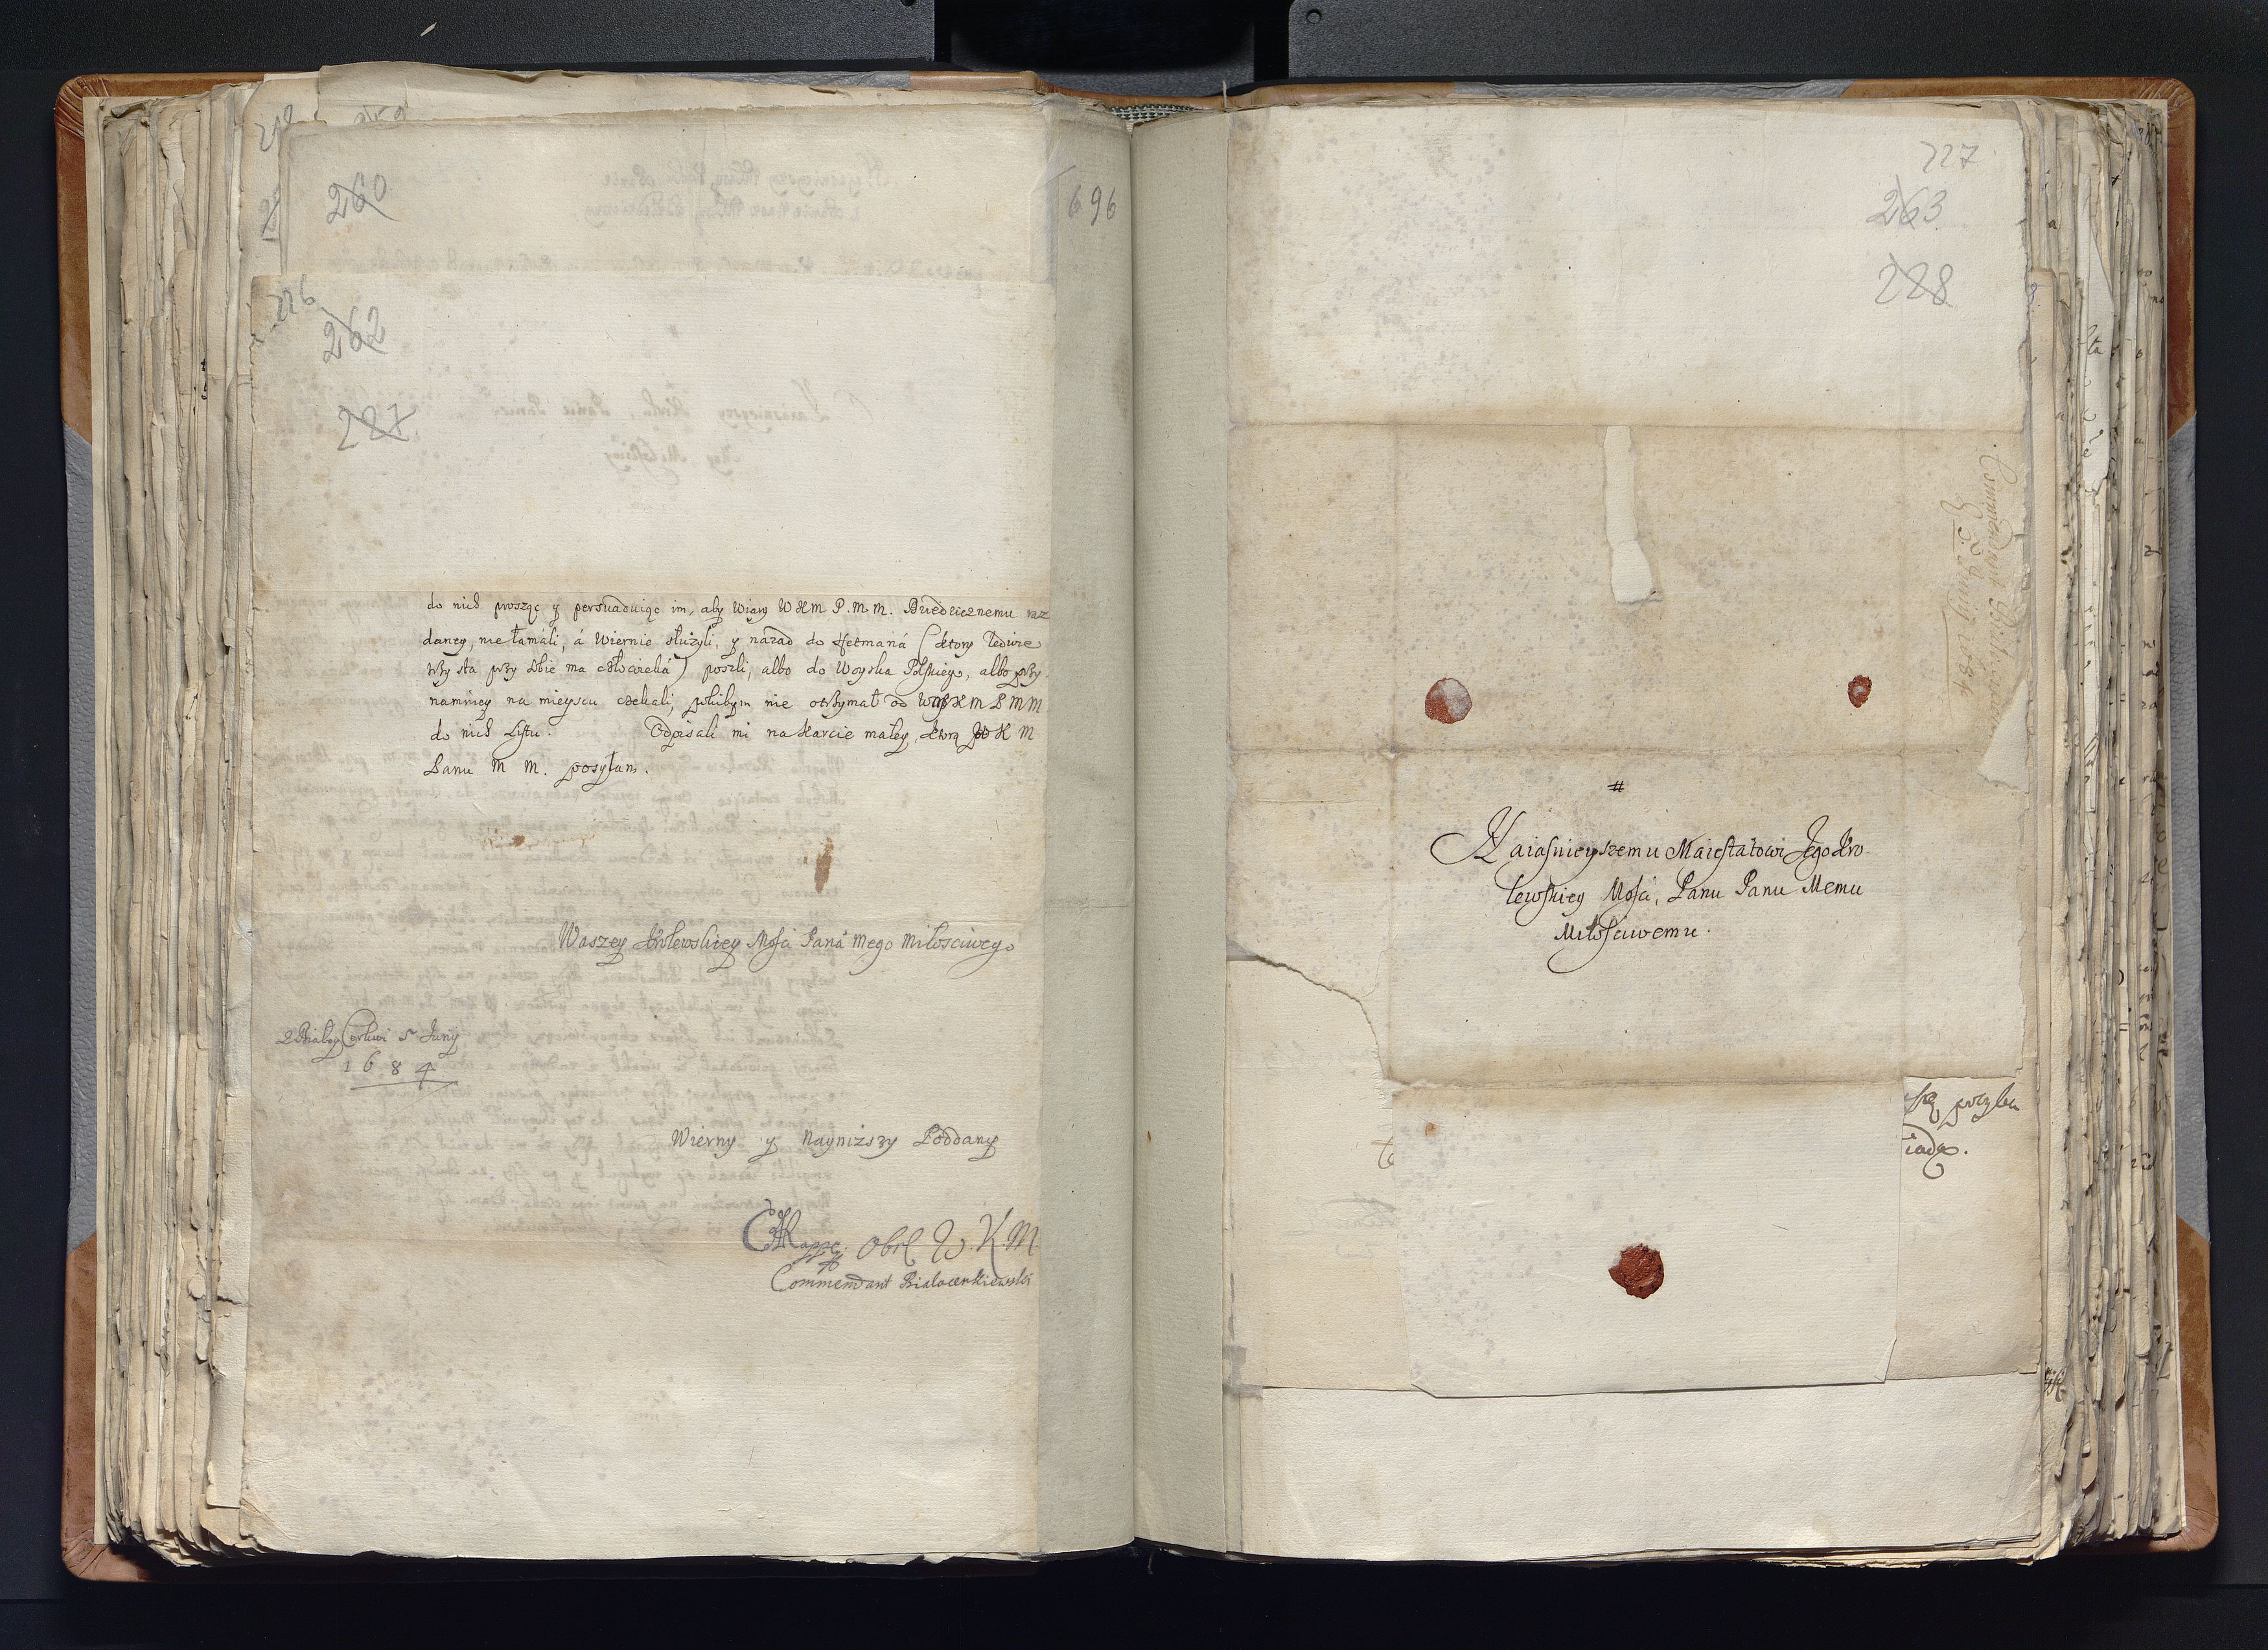 260
696
226
262
287
do nich prosząc y persuaduiąc im, aby Wiary WKM P. M. M. Dziedzicznemu raz
daney, nie łamali, á Wiernie służyli, y nazad do Hetmaná (ktory ledwie
trzy sta przy sobie ma człowieká) poszli, albo do Woyska Polskiego, albo przy
namniey na mieyscu czekali, pokibym nie otrzymał od WKM P M M
do nich Listu. Odpisali mi na karcie małey, ktorą WKM
Panu M M. posyłam.
Waszey Krolewskiey Mości Paná mego Miłosciwego
Z Białey Cerkwi 5 Juny
1684
Wierny y Nayniższy Poddany
Obrl W. K. M.
Commendant Bialocerkiewski
227
263
228
Commendant
5 Juny 1684
#
Naiaśnieyszemu Maiestatowi Jego Kro-
lewskiey Mości, Panu Panu Memu
Miłościwemu.